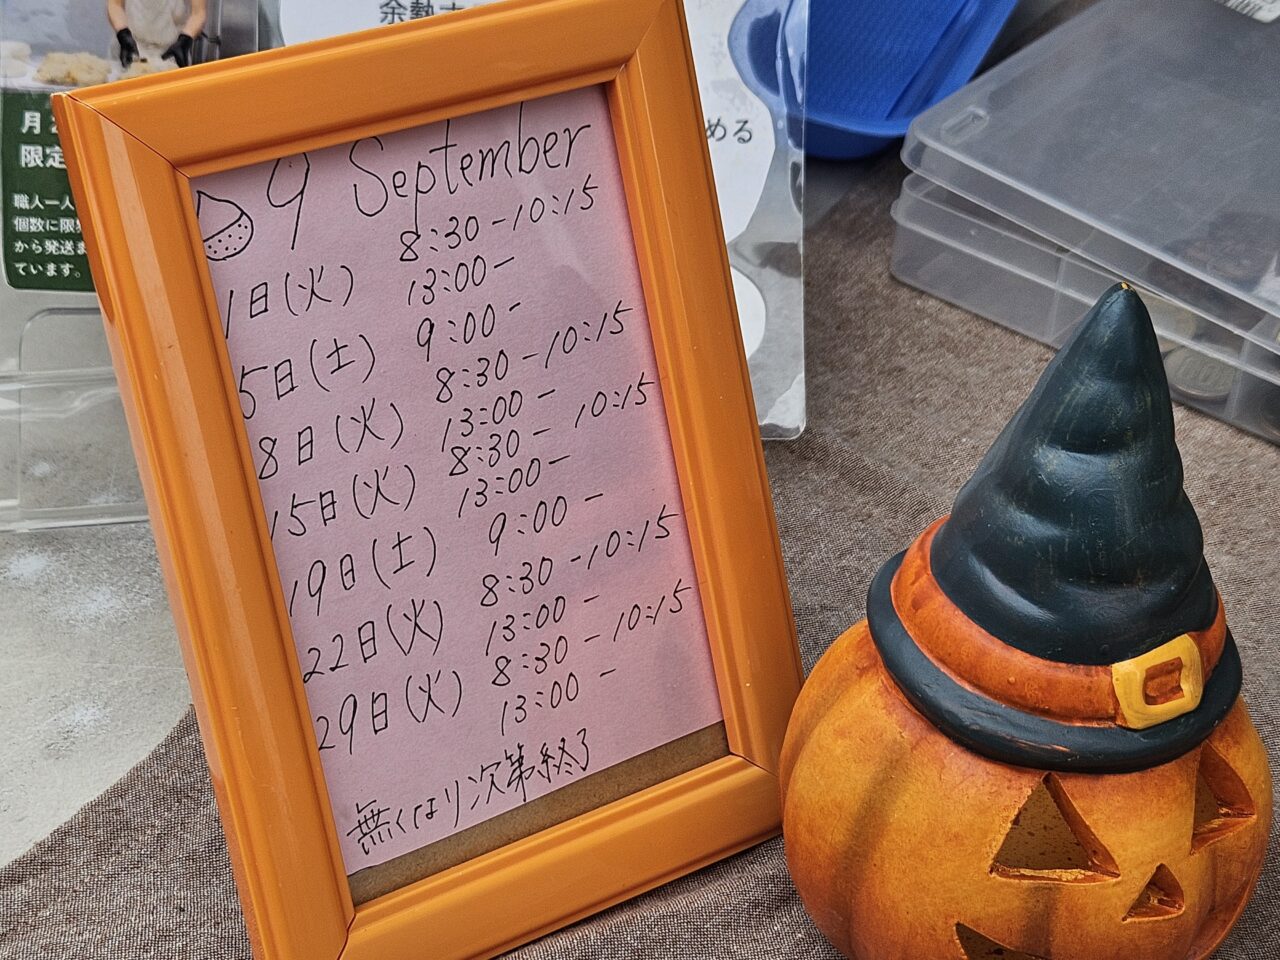 余熱
月
限定
職人一人
個数に限
から発送ま
ています。
める
9 September
1日(火) 8:30-10:15
13:00-
5日(土) 9:00-
8日(火) 8:30-10:15
13:00-
15日(火) 8:30-10:15
13:00-
19日(土) 9:00-
22日(火) 8:30-10:15
13:00-
29日(火) 8:30-10:15
13:00-
無くなり次第終了